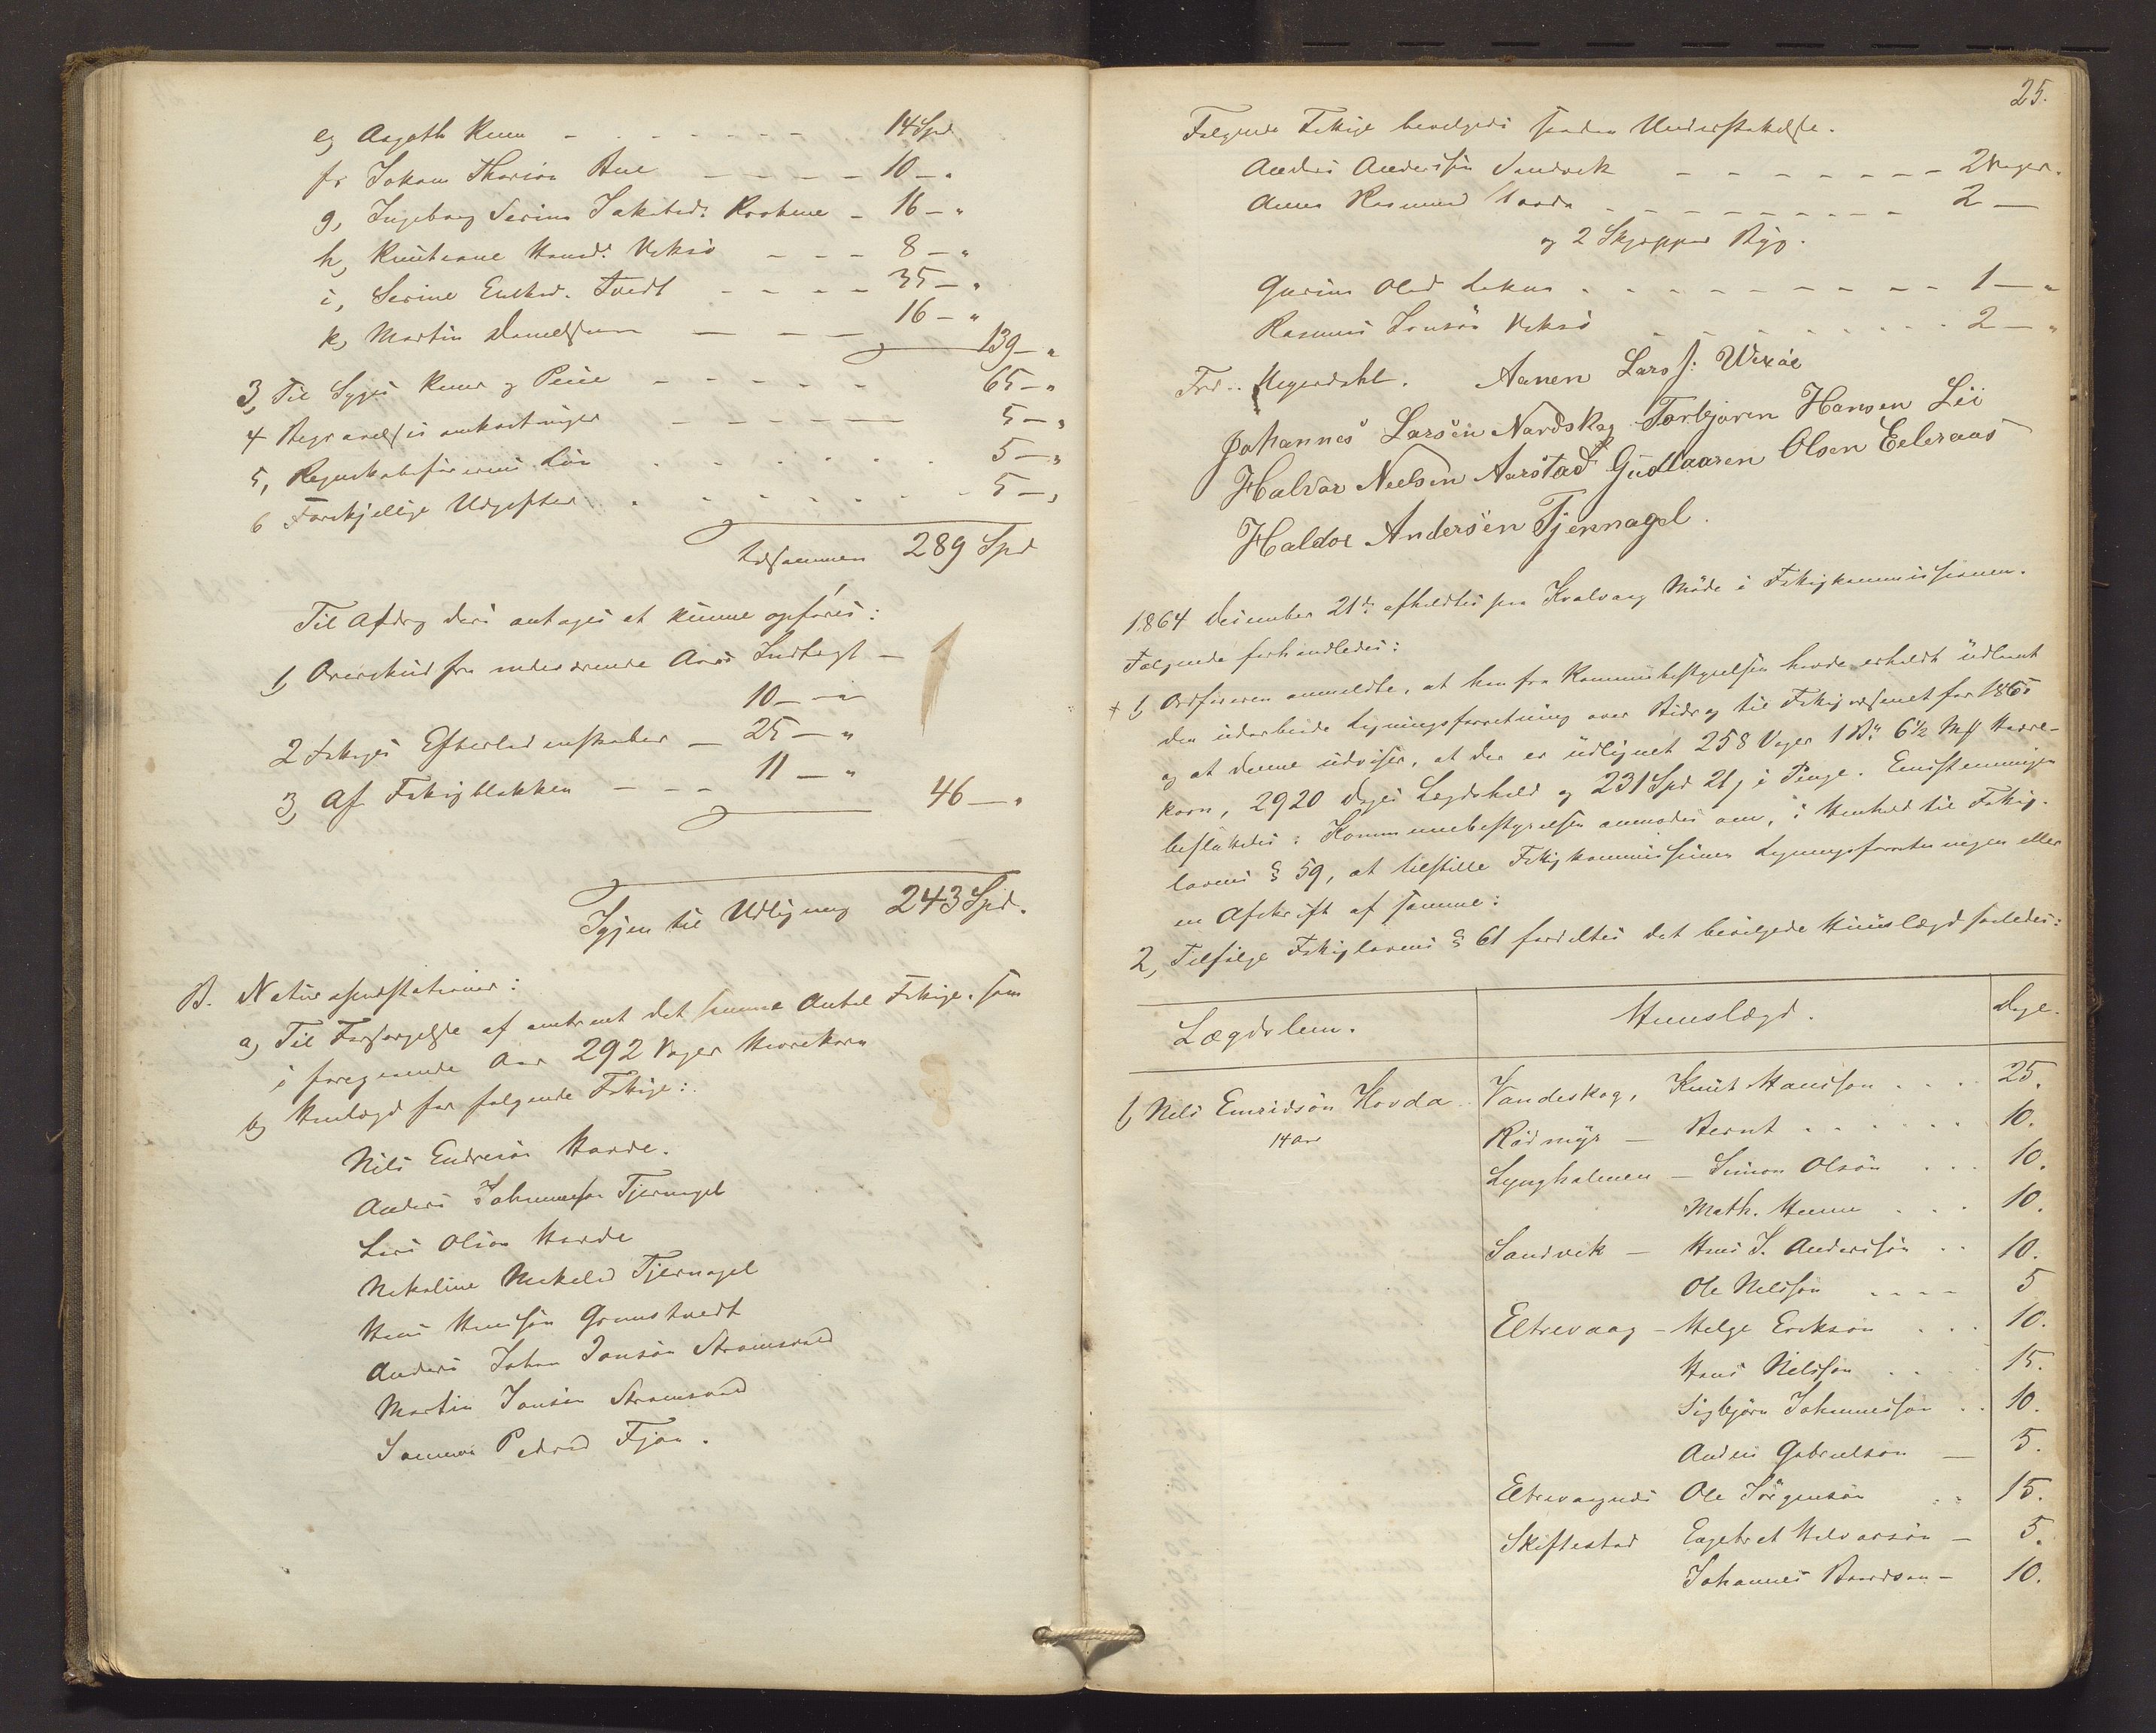 e, Aageth Knu 14 Spd
f, Johan Thorsen Aue 10 - "
g, Ingeborg Serine Jakobsd. 16 - "
h, Knutiane Hansd. Veksø 8 - "
i, Serine Endred. Tvedt 35 - "
k, Martin Danielsen 16 - "
139 - "
3, Til Syges Kuur og Pleie 65 - "
4 Begravelses omkostninger 5 - "
5, Regnskabsførerens Løn 5 - "
6 Forskjellige Udgifter 5 - "
tilsammen 289 Spd
Til Afdrag deri antages at kunne opføres:
1, Overskud fra indeværende Aars Indtægt -
10 - "
2 Fattiges Efterladenskaber - 25 - "
3, Af Fattigblokken - - - 11 - "
46 - "
Igjen til Udligning 243 Spd.
B. Naturalpræstationer:
a, Til Forsørgelse af omtrent det samme Antal Fattige, som
i foregaaende Aar 292 Voger Havrekorn
b, Huuslægd for følgende Fattige:
Nils Endresøn Hovde.
Anders Johannessøn Tjernagel
Lars Olsøn Hovde
Nikoline Mikkelsd Tjernagel
Hans Hansøn Grønstvedt
Anders Johan Jonsøn Strømsvold
Martin Jonsøn Strømsvold
Pedersd Fjøn.
25.
Følgende Fattige bevilgedes saadan Understøttelse.
Anders Anderssøn Sandvik 2 Voger.
Anna Rasmusd Hovda 2 -
og 2 Skjepper Byg.
Gurine Olsd Lokna 1 - "
Rasmus Jonsøn Veksø 2 - "
Fred. Meyerdahl. Aanen Lars s: Wexøe
Johannes Larsen Nordskog Torbjøren Hansen Lie
Halvor Neelsen Aarstad Gudlaaren Olsen Eeleraas
Haldor Andersen Tjernagel.
1864 December 21de afholdtes paa Kvalvaag Møde i Fattigkommissionen.
Følgende forhandledes:
+ 1, Ordføreren anmeldte, at han fra Kommunebestyrelsen havde erholdt udlaant
den udarbeidede Ligningsforretning over Bidrag til Fattigvæsenet for 1865
og at denne udviser, at der er udlignet 258 Voger 1 Bp 6½ Mk Havre-
korn, 2920 Dages Lægdshold og 231 Spd 21 s i Penge. Eenstemmigen
besluttedes: Kommunebestyrelsen anmodes om, i Henhold til Fattig-
lovens § 59, at tilstille Fattigkommissionen Ligningsforretningen eller
en Afskrift af samme:
2, Tilfølge Fattiglovens § 61 fordeltes det bevilgede Huuslægd saaledes:
Lægdslem. Huuslægd. Dage.
1, Nils Endridsøn Hovda Vandeskog, Knut Hansson 25.
14 Aar Rødmyr - Bernt 10.
Lyngholmen - Simon Olsøn 10.
Math. 10.
Sandvik - Hans J. Anderssøn 10.
Ole Nilssøn 5
Eltrevaag - Helge Erikson 10.
Hans Nilssøn 15.
Sigbjørn Johannessøn 10.
Anders Gabrielsøn - 5.
Eltrevaagnæs Ole Jørgensøn 15.
Skiftestad Engebret Halvorsøn - 5.
Johannes Baardsøn - 10.